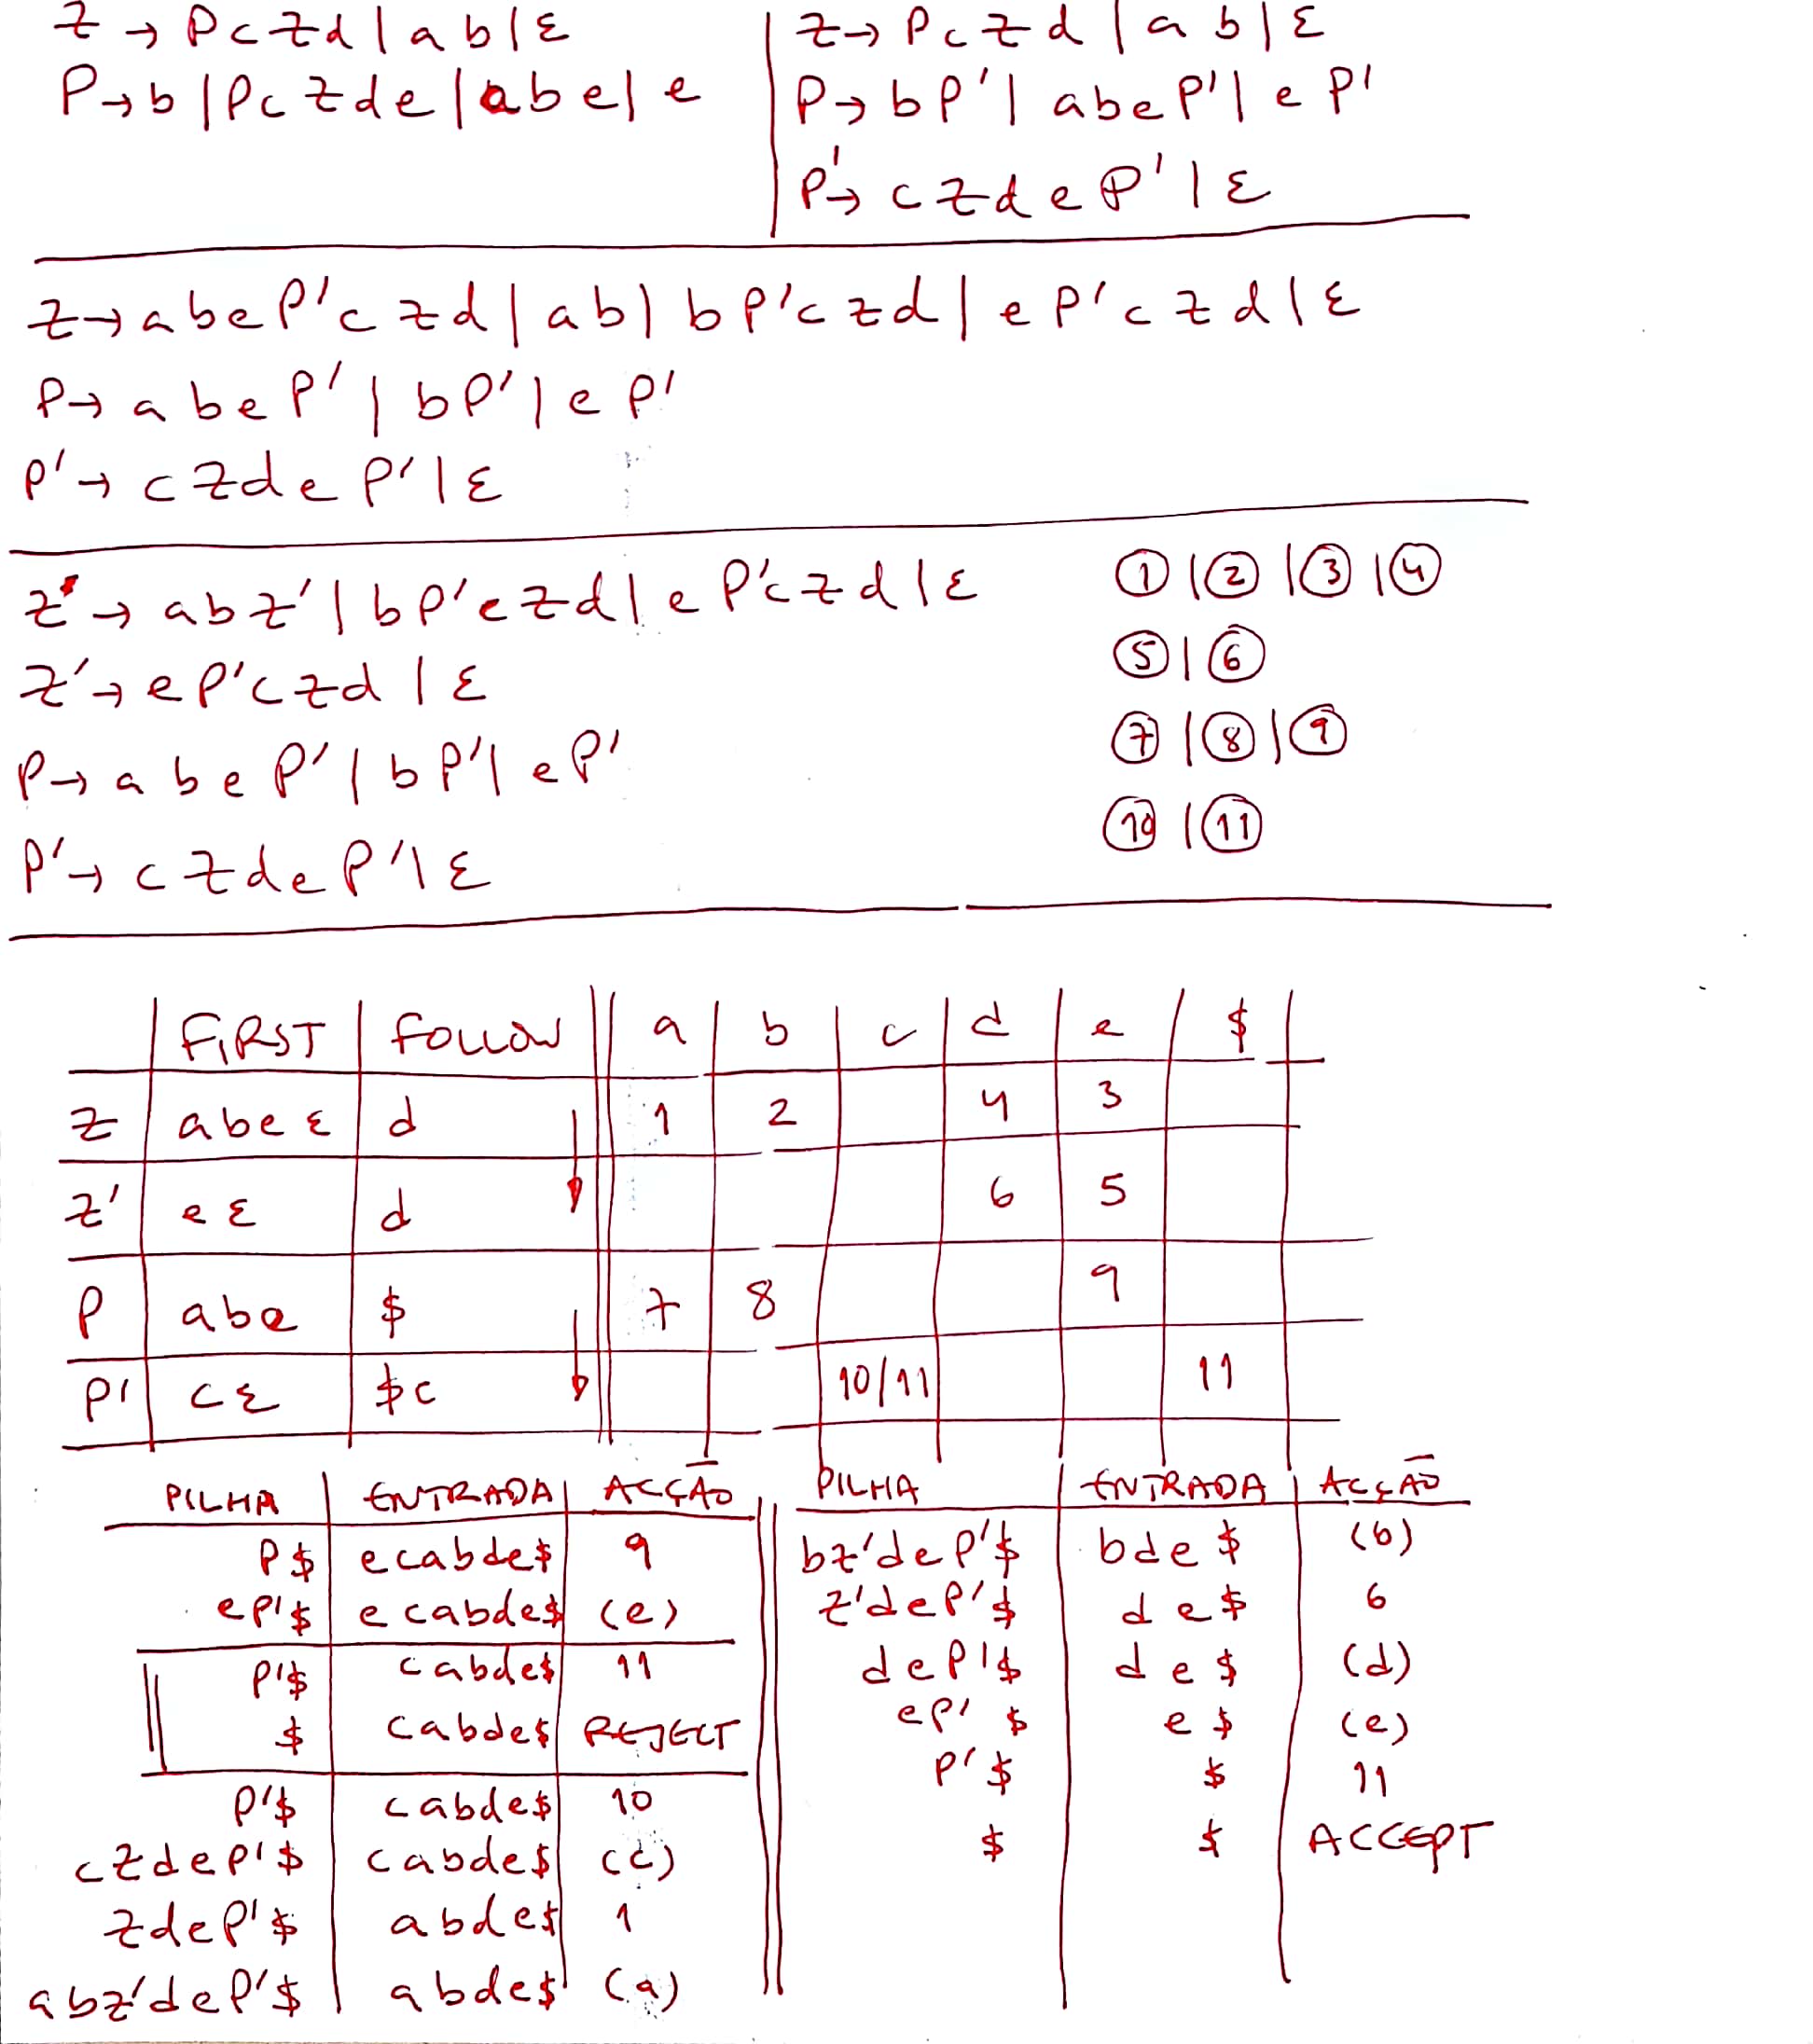 z → Pczd | ab | ε
P → b | Pczde | abe | e
z → Pczd | ab | ε
P → bP' | abeP' | eP'
P' → czdeP' | ε
z → abeP'czd | ab | bP'czd | eP'czd | ε
P → abeP' | bP' | eP'
P' → czdeP' | ε
z → abz' | bP'czd | eP'czd | ε ① | ② | ③ | ④
z' → eP'czd | ε ⑤ | ⑥
P → abeP' | bP' | eP' ⑦ | ⑧ | ⑨
P' → czdeP' | ε ⑩ | ⑪
FIRST FOLLOW a b c d e $
z abeε d 1 2 4 3
z' eε d 6 5
P abe $ 7 8 9
P' cε $c 10/11 11
PILHA ENTRADA ACÇÃO
P$ ecabde$ 9
eP'$ ecabde$ (e)
P'$ cabde$ 11
$ cabde$ REJECT
P'$ cabde$ 10
czdeP'$ cabde$ (c)
zdeP'$ abde$ 1
abz'deP'$ abde$ (a)
PILHA ENTRADA ACÇÃO
bz'deP'$ bde$ (b)
z'deP'$ de$ 6
deP'$ de$ (d)
eP'$ e$ (e)
P'$ $ 11
$ $ ACCEPT